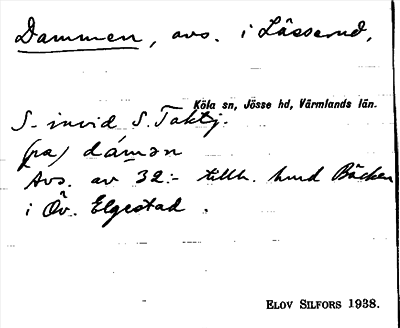 Dammen, avs. i Lässerud,
Köla sn, Jösse hd, Värmlands län.
S. invid S. Taktj.
(pa) dámən
Avs. av 32:- tillh. hmd Bäcken
i Öv. Elgestad.
ELOV SILFORS 1938.